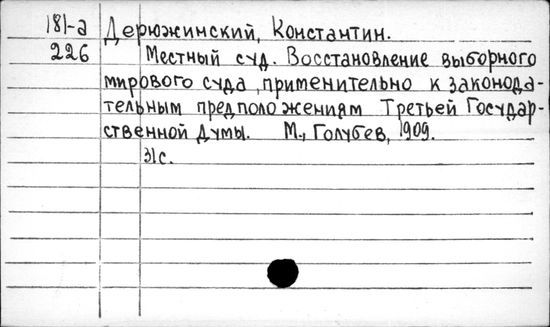 181-а Дерюжинский, Константин.
226 Местный суд. Восстановление выборного
мирового суда, применительно к законода-
тельным предположениям Третьей Государ-
ственной Думы. М., Голубев, 1909.
31с.